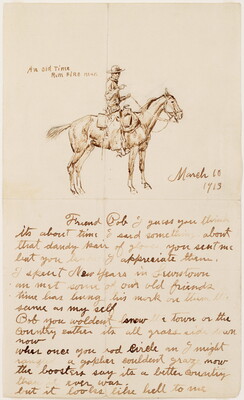 An old Time
March 10
1913
Friend Bob I guess you think
its about time I said something about
that dandy pair of gloves you sent me
but you I appreciate them.
I spent New Years in
an met some of our old friends
time has hung his mark on them
same as my self
Bob you wouldent know the town or the
country eather its all grass side down
now
wher once you rod circle an I night
a gopher couldent graze now
the boosters say its a better country
than it ever was
but it looks like hell to me